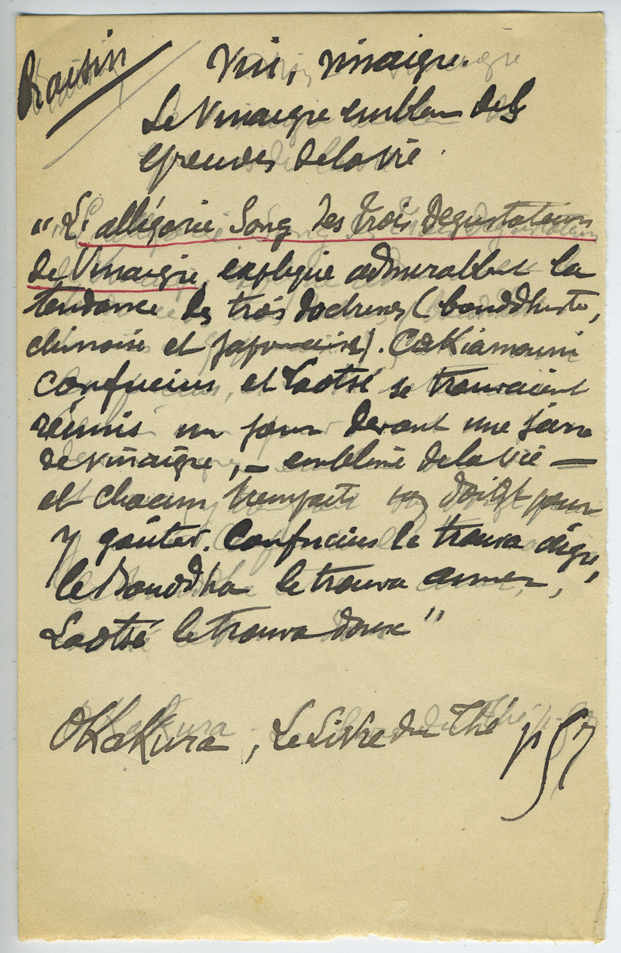 Raisin
Vin, vinaigre.
Le Vinaigre emblem des
épreuves de la vie.
"L'allégorie Song des trois dégustateurs
de Vinaigre, explique admirablt la
tendance des trois doctrines (bouddhiste,
chinoise et japonaise). Cakiamouni
Confucius, et Laotsé se trouvaient
réunis un jour devant une jarre
de vinaigre, – emblème de la vie –
et chacun trempait son doigt pour
y goûter. Confucius le trouva aigre,
le Bouddha le trouva amer,
Laotsé le trouva doux"
Okakura, Le Livre du Thé p 57